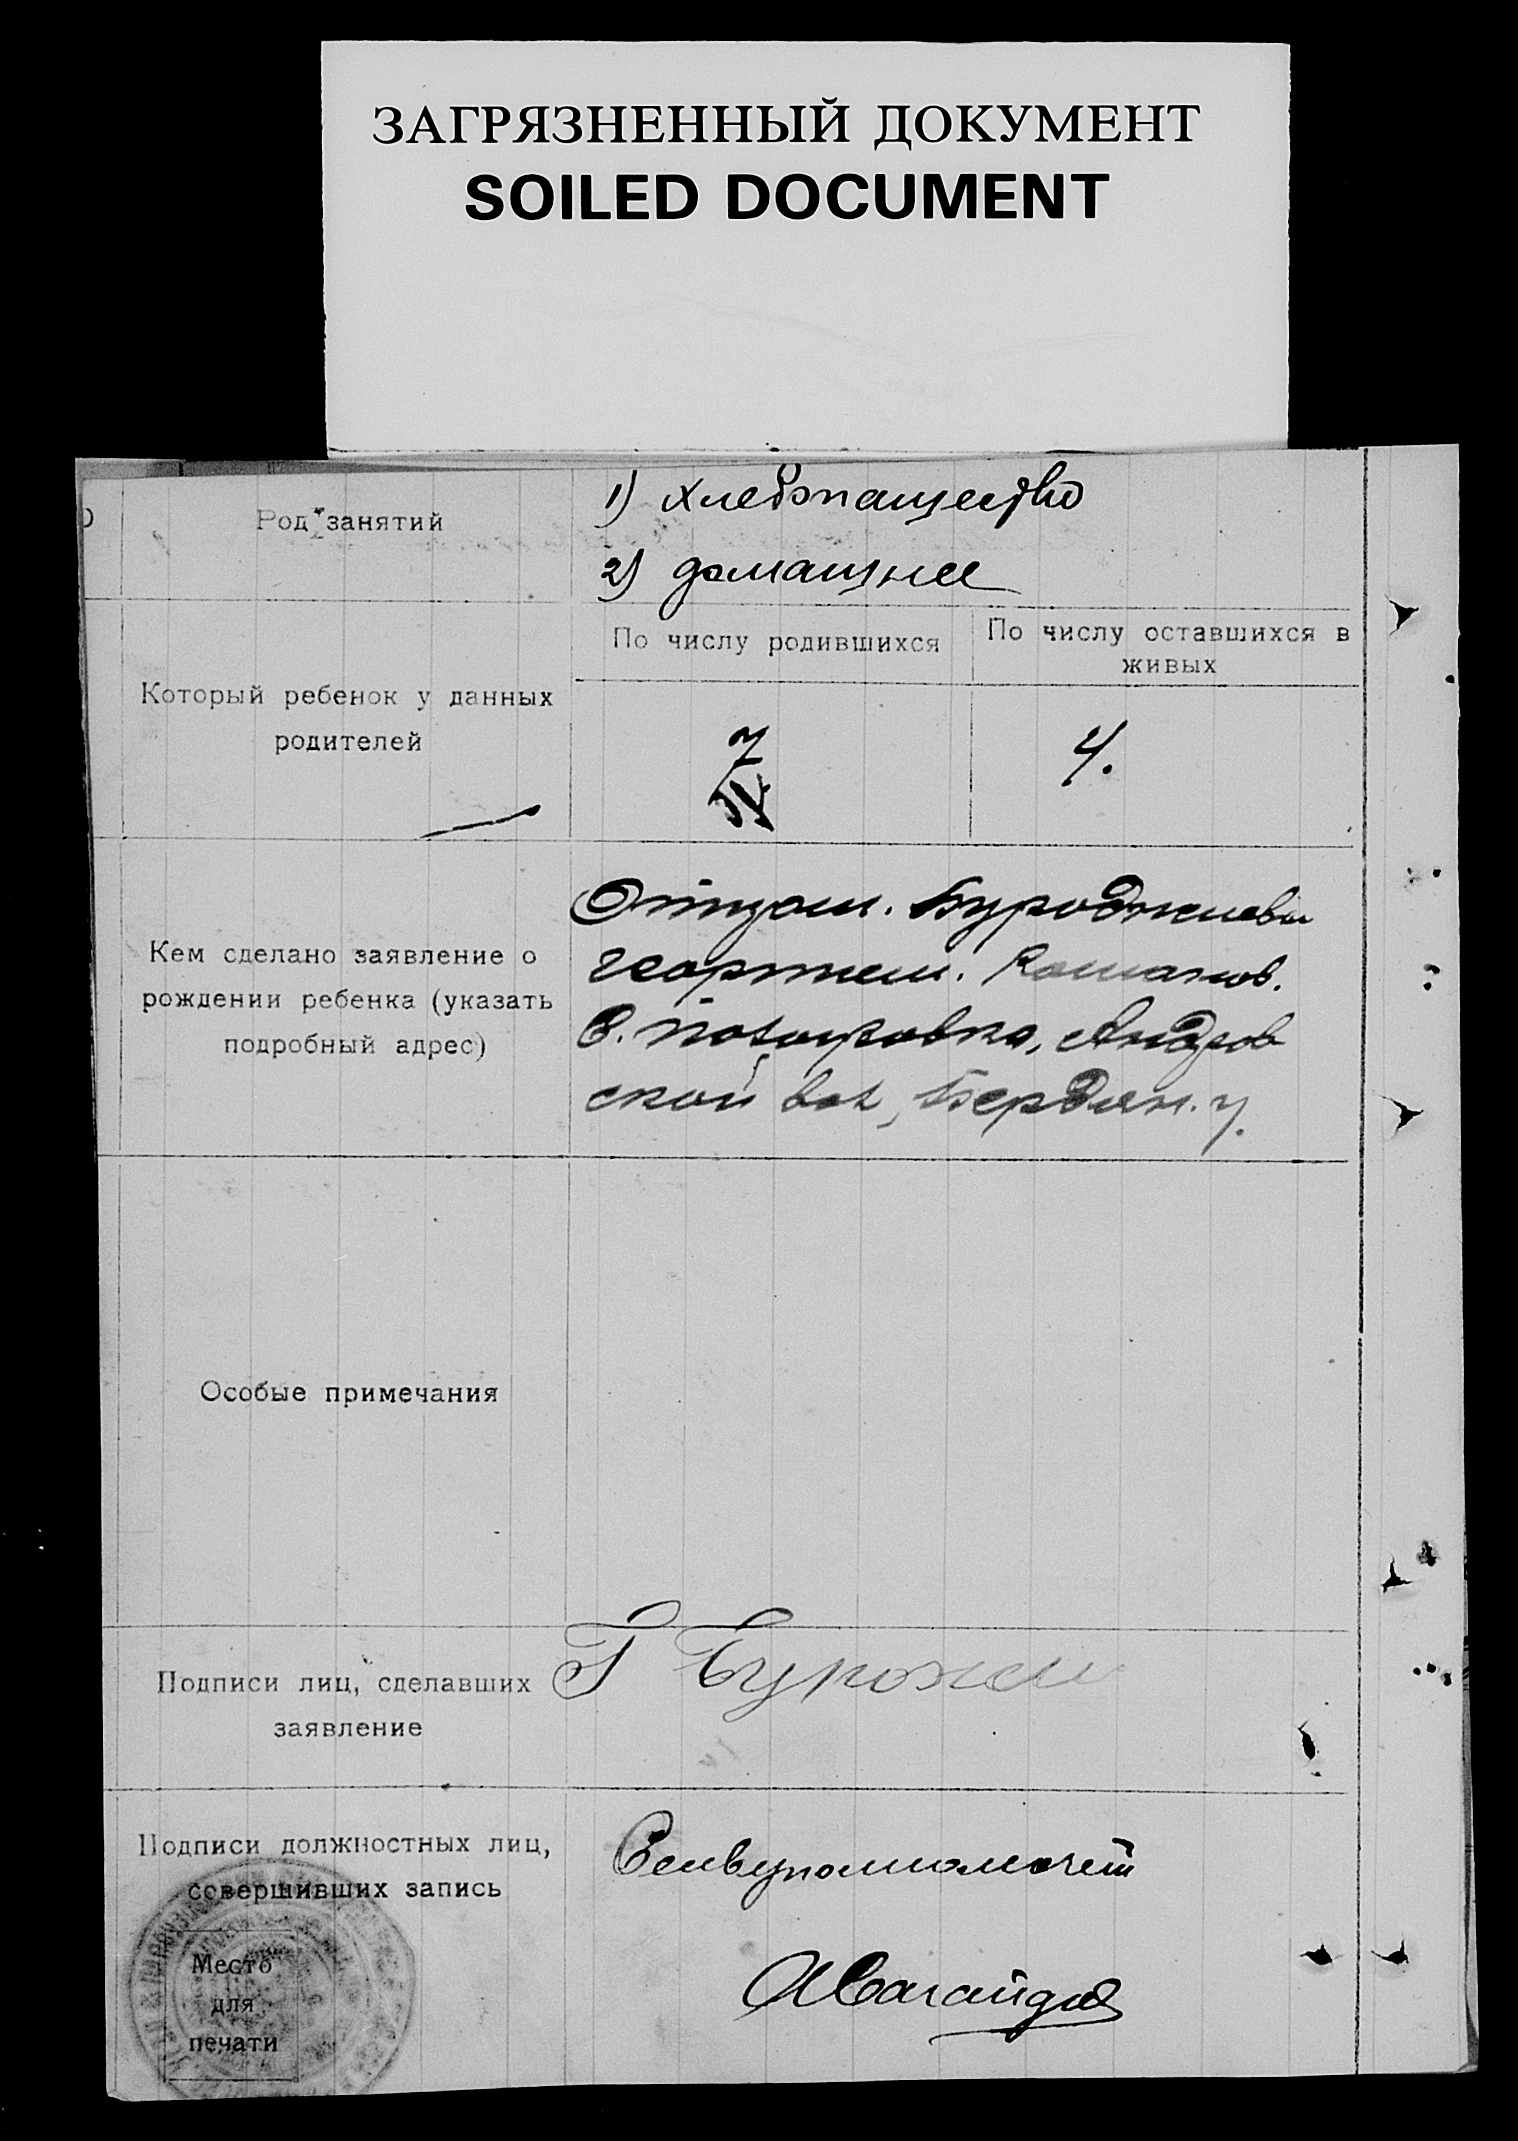 ЗАГРЯЗНЕННЫЙ ДОКУМЕНТ
SOILED DOCUMENT
Род занятий
1) хлебопашество
2) домашнее
Который ребенок у данных
родителей
По числу родившихся
По числу оставшихся в
живых
7
4.
Кем сделано заявление о
рождении ребенка (указать
подробный адрес)
Отцом. Бурджиевым
Георгием.
Андров
ской вол, Бердян. у.
Особые примечания
Подписи лиц, сделавших
заявление
Г
Подписи должностных лиц,
совершивших запись
Место
для
печати